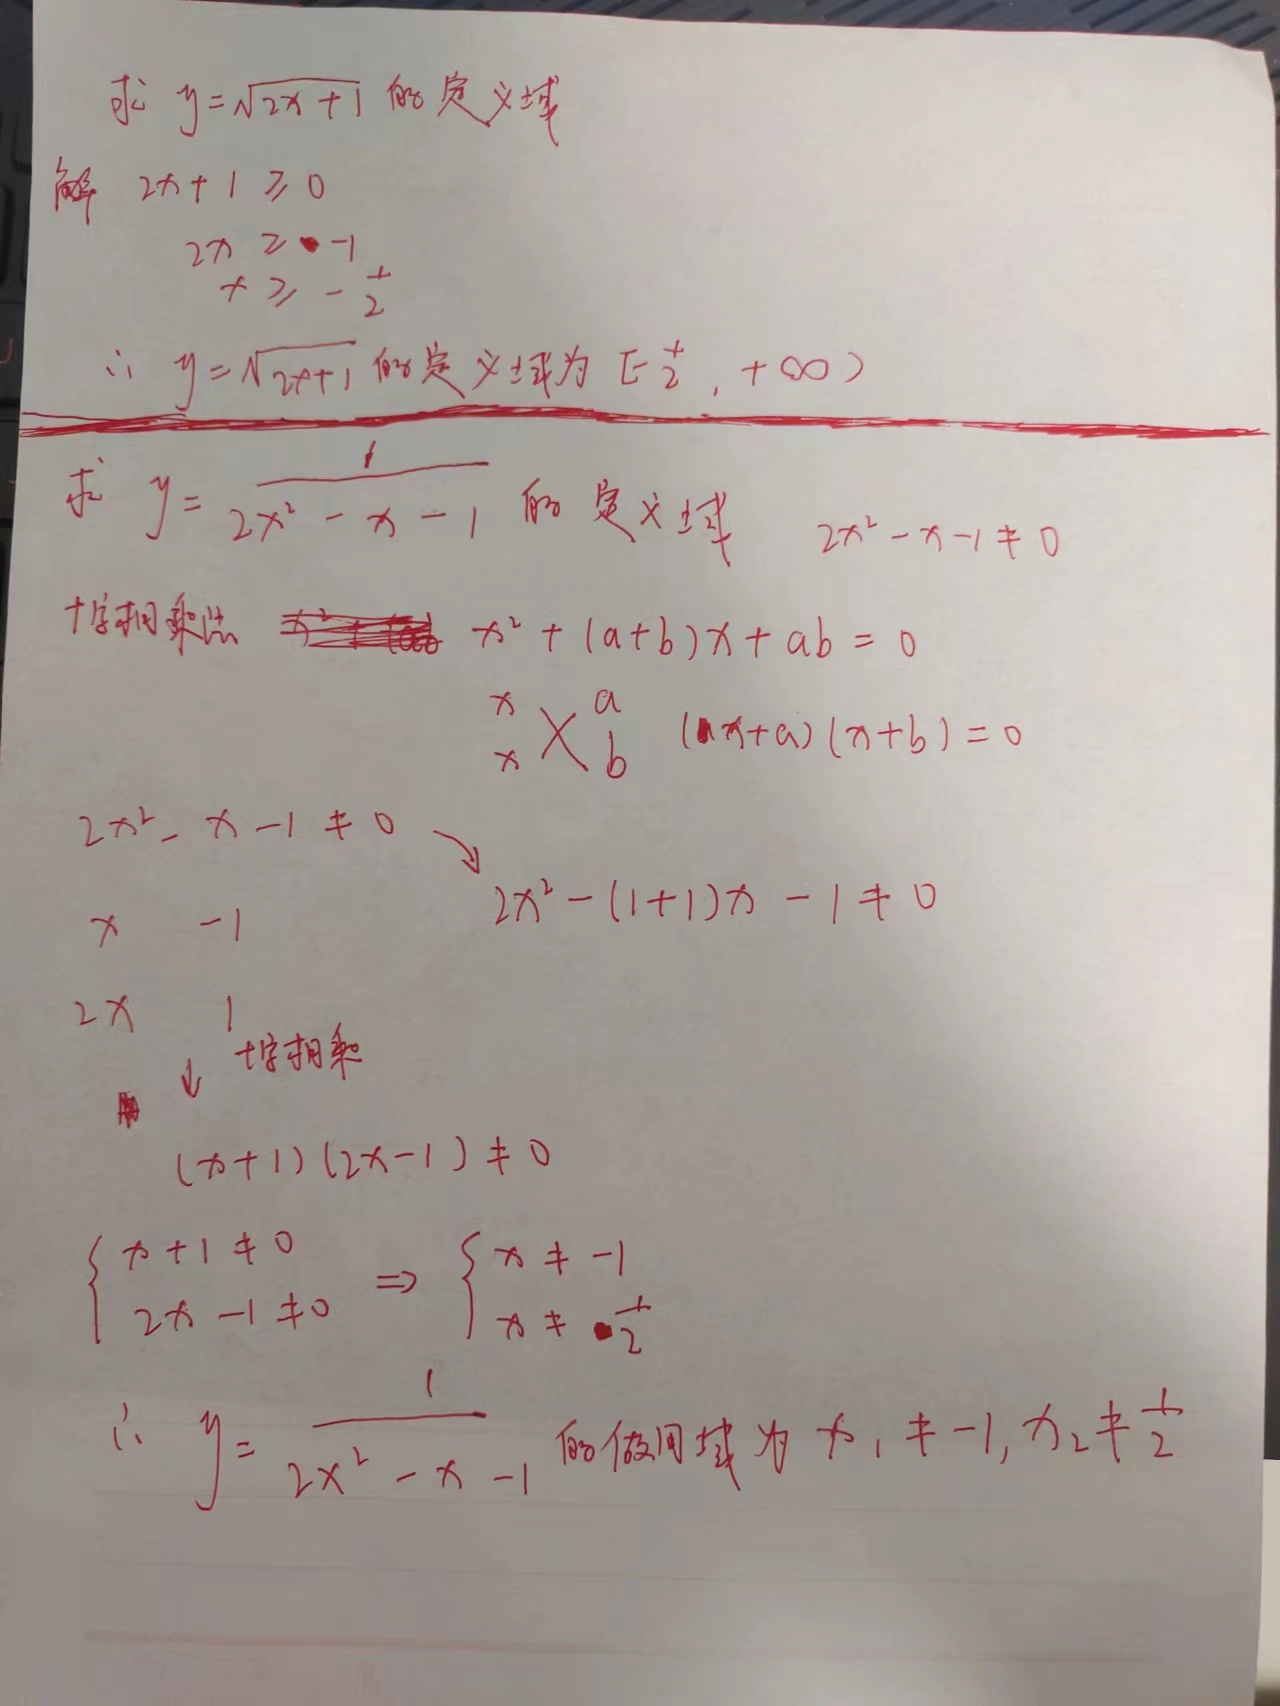 求 y=√(2x+1) 的定义域
解 2x+1 ≥ 0
2x ≥ -1
x ≥ -1/2
∴ y=√(2x+1) 的定义域为 [-1/2, +∞)
求 y= 1/(2x² - x - 1) 的定义域 2x² - x - 1 ≠ 0
十字相乘法 x² + (a+b)x + ab = 0
x a
x b (x+a)(x+b) = 0
2x² - x - 1 ≠ 0
2x² - (1+1)x - 1 ≠ 0
x -1
2x 1
↓ 十字相乘
(x+1)(2x-1) ≠ 0
{ x+1 ≠ 0 ⇒ { x ≠ -1
2x-1 ≠ 0 x ≠ 1/2
∴ y= 1/(2x² - x - 1) 的做用域为 x₁ ≠ -1, x₂ ≠ 1/2